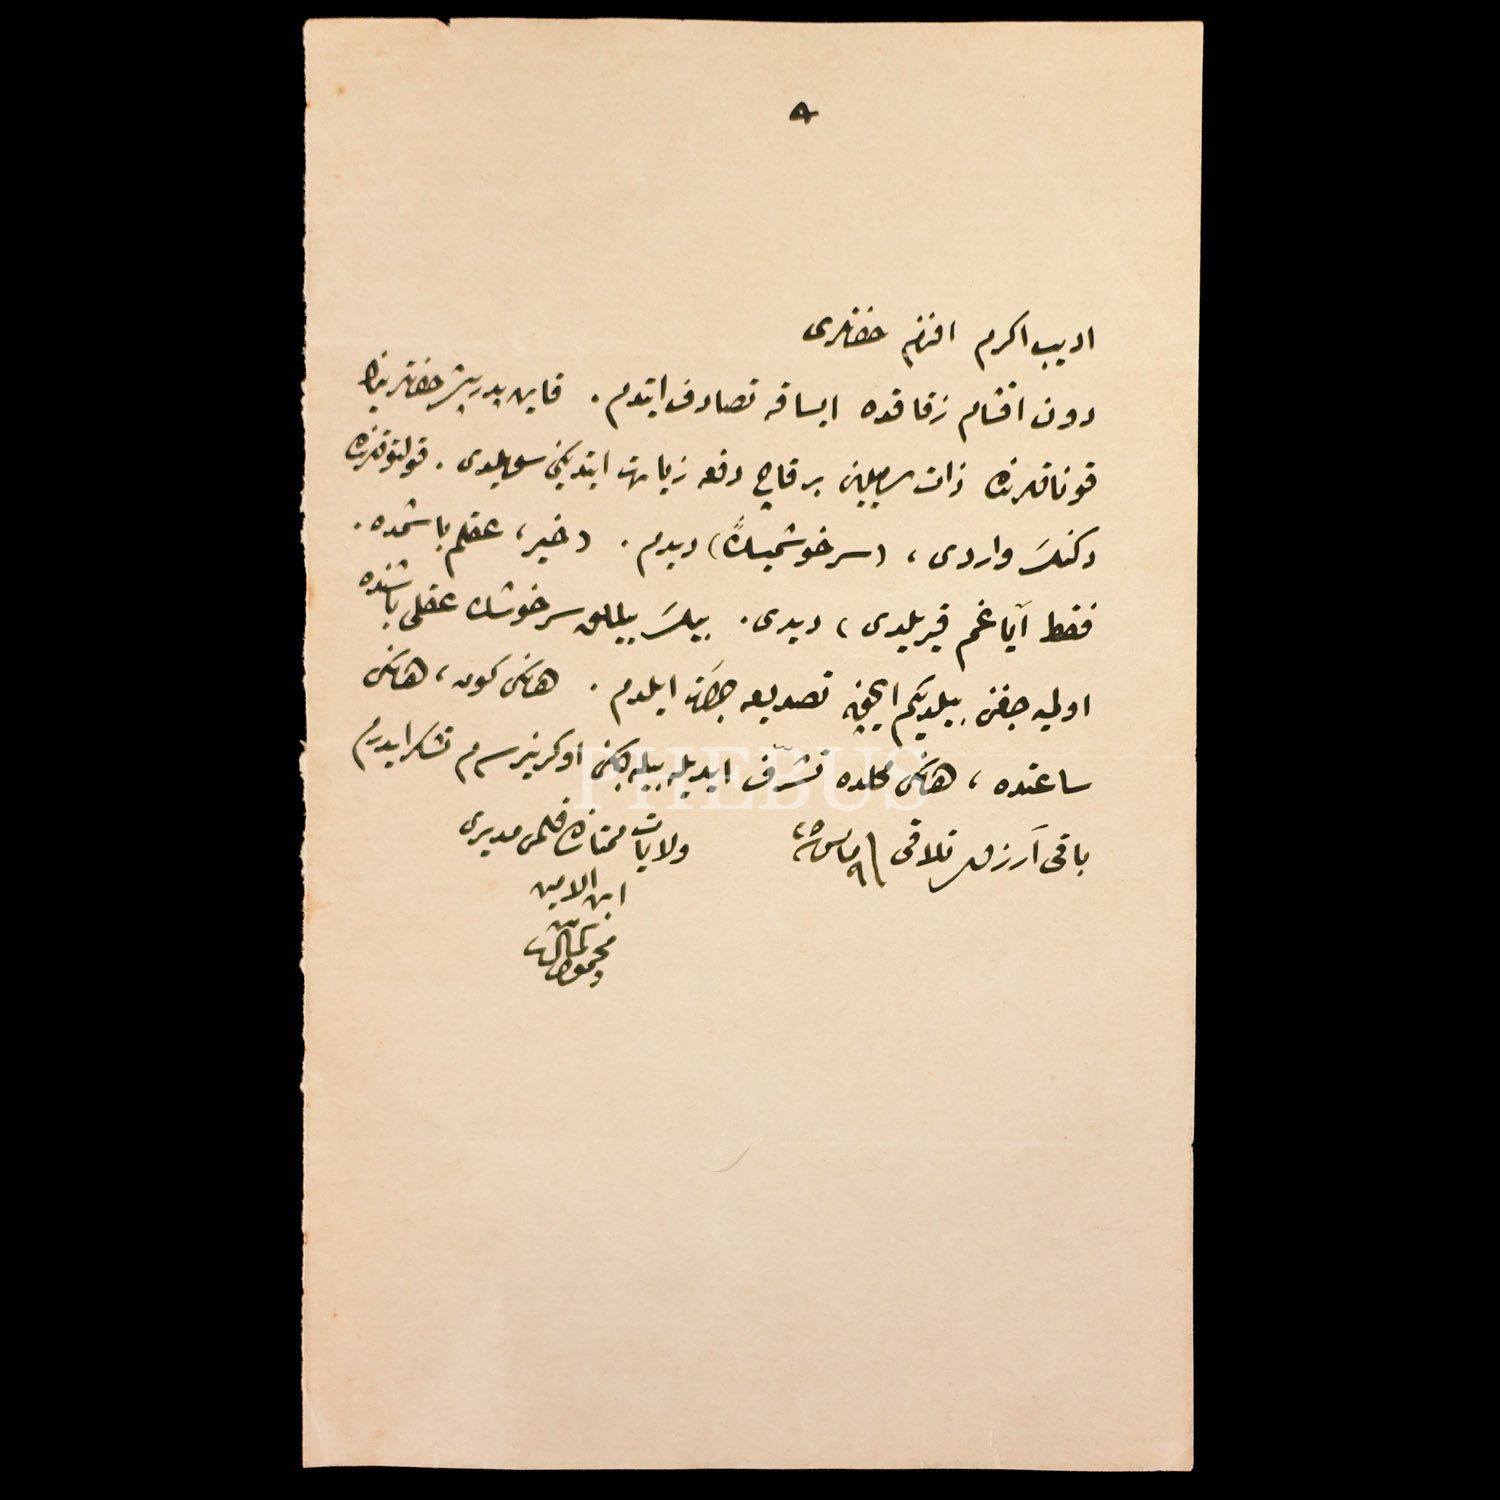 ادیب اکرم افندم حضرتلری
دون اقشام زقاقده ایساقه تصادف ایتدم . قاین پدریکز حضرتلرینک
قوناقلرنده ذات برقاچ دفعه زیارت ایتدیکنی سویلدی . قولتوقلرنده
دکنک واردی ، (سرخوشمیسک) دیدم . (خیر ، عقلم باشمده .
فقط آیاغم قیریلدی) دیدی . سرخوشک عقلی باشنده
اولمیه جغنی بیلدیکم ایچون تصدیعه جرأت ایلدم . هانکی کون ، هانکی
ساعتده ، هانکی محلده تشرّف ایدیله بیله جکنی اوکرنیرسه م تشکر ایدرم
باقی آرزوی تلاقی ۹ مارس
ولایات ممتازه قلمی مدیری
ابن الامین
محمود کمال
PHEBUS